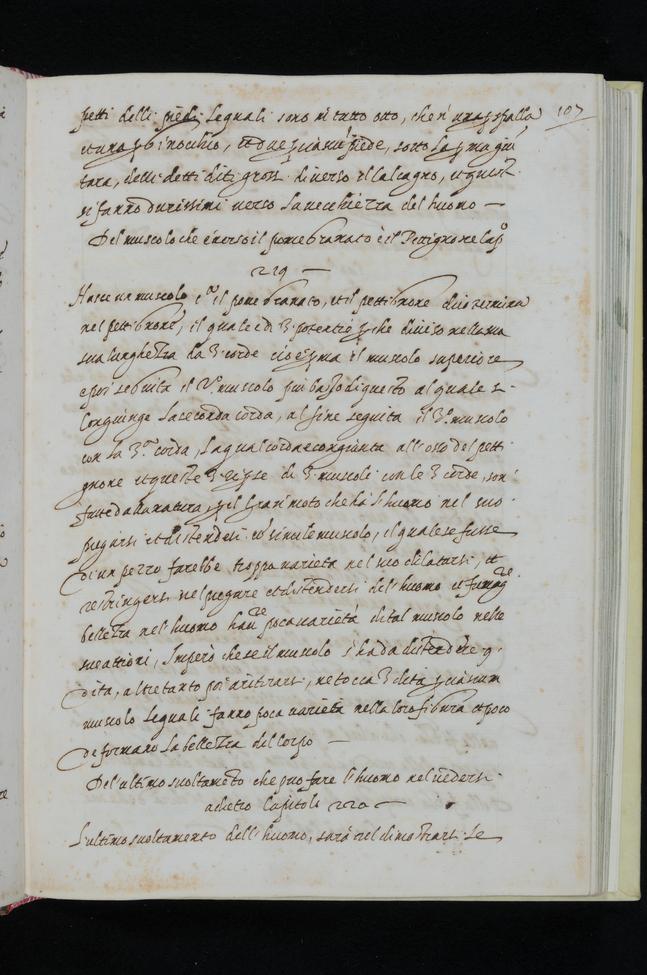 petti delli piedi lequali sono in tutto otto, che n'una p spalla 107
et una p ginocchio, et due p ciascun piede, sotto la p.ma giun
tura, delli detti diti grossi di verso il calcagno, et questi
si fanno durissimi verso la vecchiezza del huomo —
Del muscolo che è verso il pome granato è il Pettignone Cap.o
229 —
Nasce un muscolo il pome granato, et il pettignone che termina
nel pettignone, il quale è di 3 potentie p che diviso nella ma
sua lunghezza da 3 corde cioe p.ma il muscolo superiore
e poi seguita il 2.o muscolo piu basso di questo al quale si
congiunge la seconda corda, al fine seguita il 3.o muscolo
con la 3.a corda, la qual corda è congiunta all'osso del petti
gnone et queste 3 riprese di 3 muscoli con le 3 corde, son
fatte dalla natura, p il gran moto che ha l'huomo nel suo
piegarsi et distendersi co' simile muscolo, il quale se fusse
di un pezzo farebbe troppa varieta nel suo dilatarsi, et
restringersi nel piegare et distendersi del huomo et fa mag.re
bellezza nel huomo hav.re poca varietà di tal muscolo nelle
sue attioni, Imperò che se il muscolo si ha da distendere 9
dita, altretanto poi a ritirarsi, ne tocca 3 dita p ciascun
muscolo lequali fanno poca varietà nella loro figura et poco
deformano la bellezza del corpo —
Del'ultimo svoltamento che puo fare l'huomo nel vedersi
adietro Capitolo 220 —
L'ultimo svoltamento dell'huomo, sarà nel dimostrarsi le